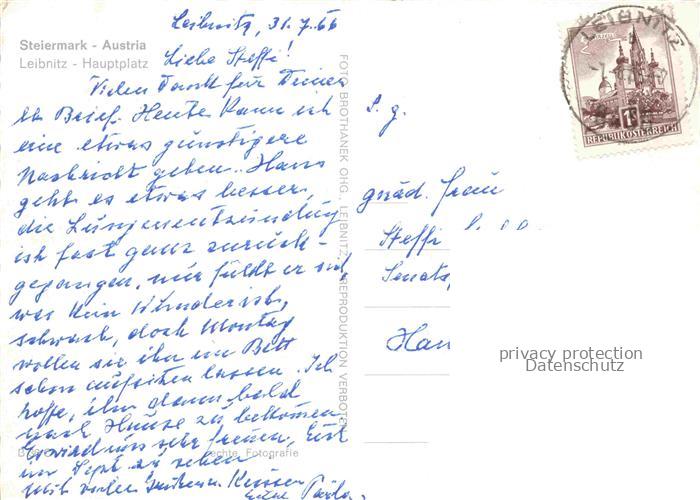 Leibnitz, 31.7.66
Steiermark - Austria
Leibnitz - Hauptplatz
Liebe Steffi!
Vielen Dank für Deinen
lb Brief. Heute kann ich
eine etwas günstigere
Nachricht geben. Hans
geht es etwas besser,
die Lungenentzündung
ist fast ganz zurück-
gegangen, nur fühlt er sich,
was kein Wunder ist,
schwach, doch Montag
wollen sie ihn im Bett
schon aufsitzen lassen. Ich
hoffe, ihn dann bald
nach Hause zu bekommen
Es wird uns sehr freuen, Euch
im Sept zu sehen
Mit vielen Küssen
Eure Paula
Echte Fotografie
FOTO BROTHANEK OHG., LEIBNITZ, REPRODUKTION VERBOTEN
S. g.
gnäd. Frau
Steffi
Senats
Han
privacy protection
Datenschutz
LEIBNITZ
Mariazell
1S
REPUBLIK ÖSTERREICH